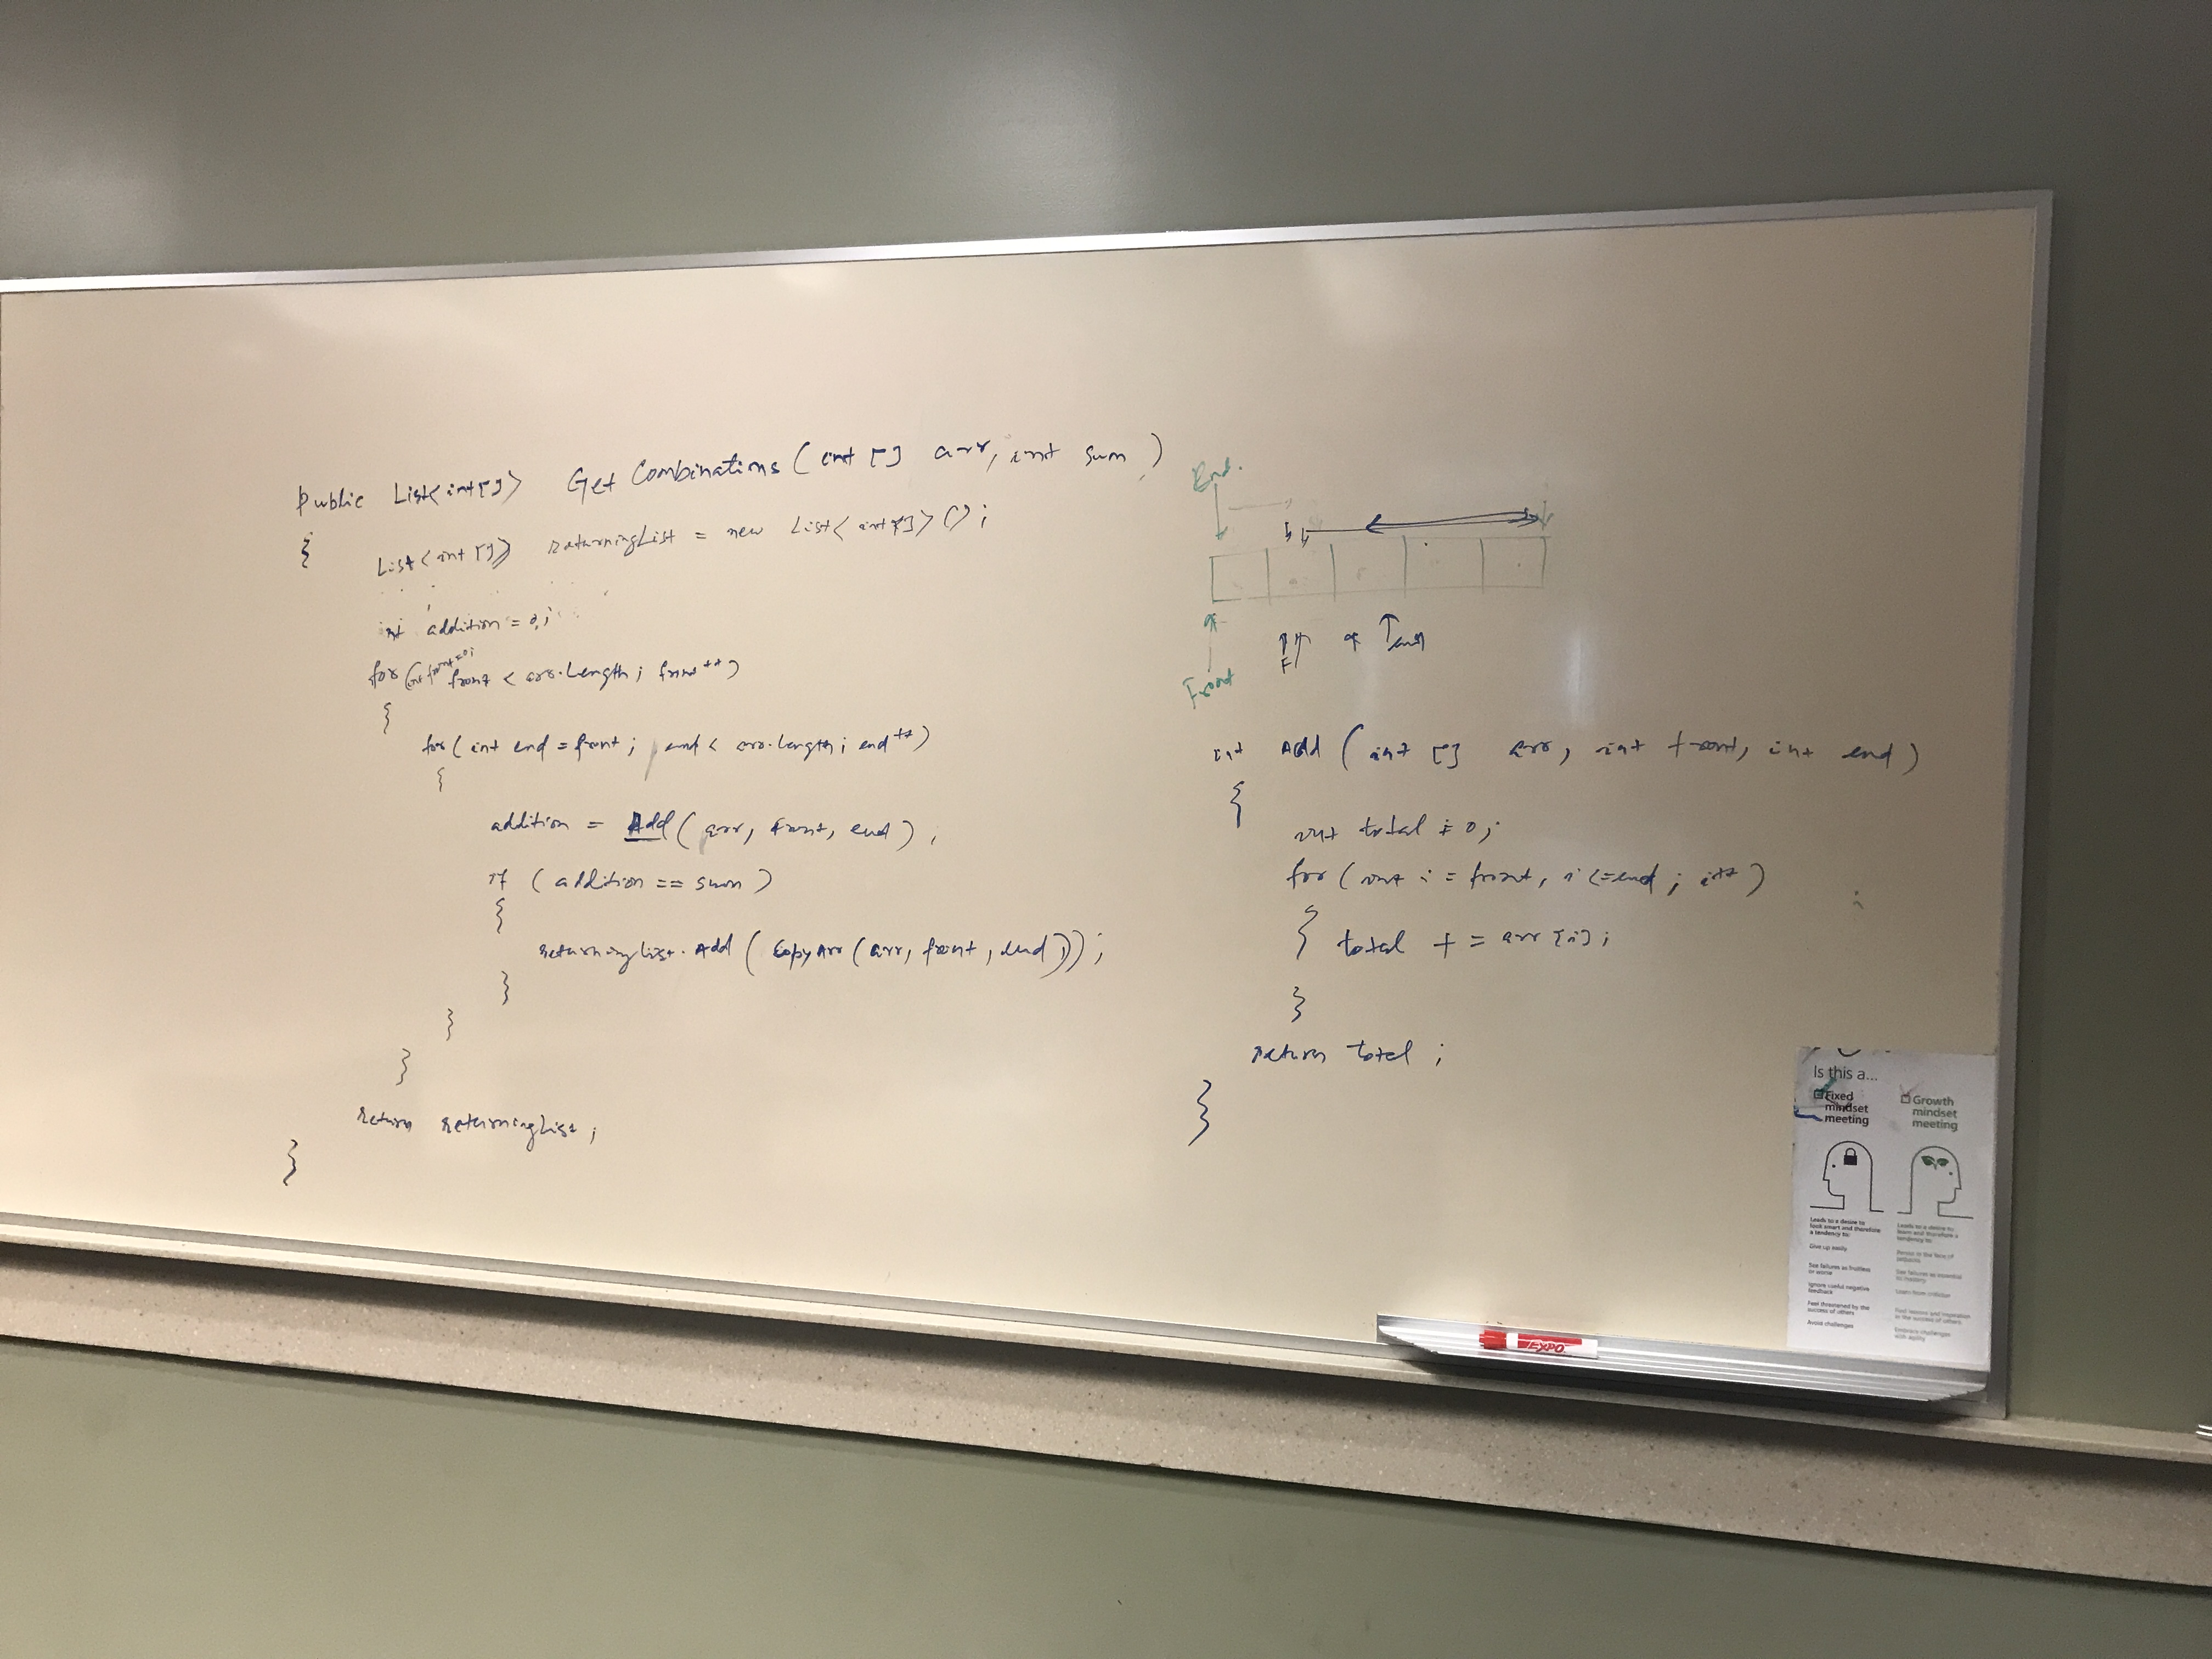 Public List<int[]> Get Combinations (int [] arr, int sum )
{
List<int []> returningList = new List<int[]>();
int addition = 0;
for (int front=0; front < arr.Length; front++)
{
for ( int end = front; end < arr.length; end++)
{
addition = Add( arr, front, end ),
if ( addition == sum )
{
returningList. Add ( CopyArr (arr, front, end ));
}
}
}
return returningList;
}
End.
F end
Front
int Add ( int [] arr, int front, int end )
{
int total = 0;
for ( int i = front, i <=end ; i++ )
{ total + = arr [i];
}
return total ;
}
Is this a...
Fixed mindset meeting
Growth mindset meeting
Leads to a desire to
look smart and therefore
a tendency to:
Give up easily
See failures as fruitless
or worse
Ignore useful negative
feedback
Feel threatened by the
success of others
Avoid challenges
Leads to a desire to
learn and therefore a
tendency to:
Persist in the face of
See failures as essential
to mastery
Learn from criticism
in the success of others
Embrace challenges
with agility
EXPO